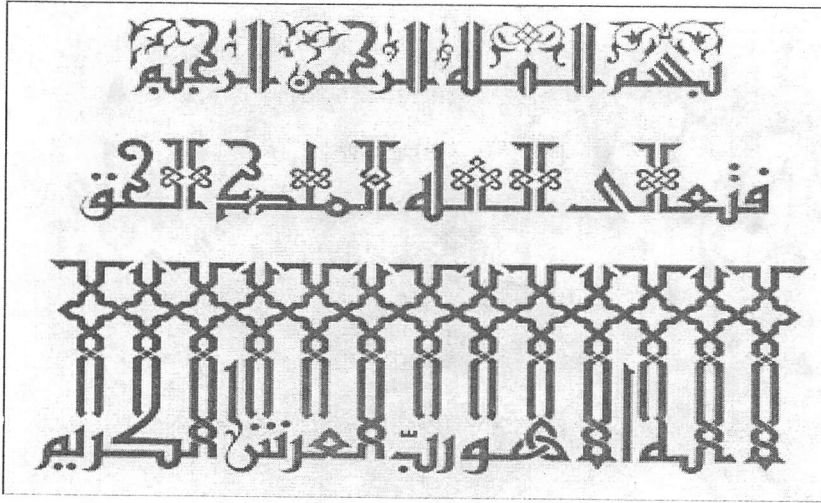 بسم الله الرحمن الرحيم
فتعالى الله الملك الحق
لا إله إلا هو رب العرش الكريم